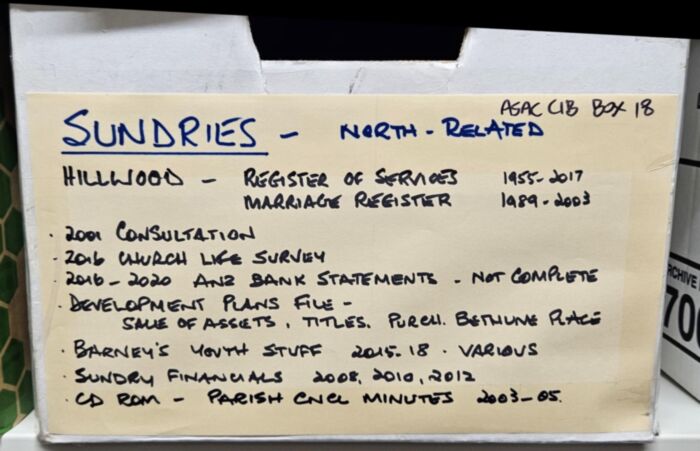 AGAC CIB BOX 18
SUNDRIES - NORTH-RELATED
HILLWOOD - REGISTER OF SERVICES 1955-2017
MARRIAGE REGISTER 1989-2003
· 2001 CONSULTATION
· 2016 CHURCH LIFE SURVEY
· 2016-2020 ANZ BANK STATEMENTS - NOT COMPLETE
· DEVELOPMENT PLANS FILE -
SALE OF ASSETS, TITLES, PURCH. BETHUNE PLACE
· BARNEY'S YOUTH STUFF 2015-18 · VARIOUS
· SUNDRY FINANCIALS 2008, 2010, 2012
· CD ROM - PARISH CNCL MINUTES 2003-05.